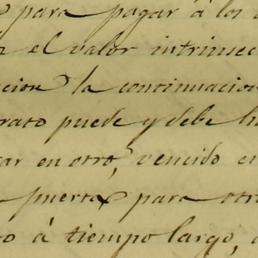 para pagar á los
el valor intrinsec
cion la continuacion
rato puede y debe ha
ar en otro, vencido en
puerta para otro
o á tiempo largo,